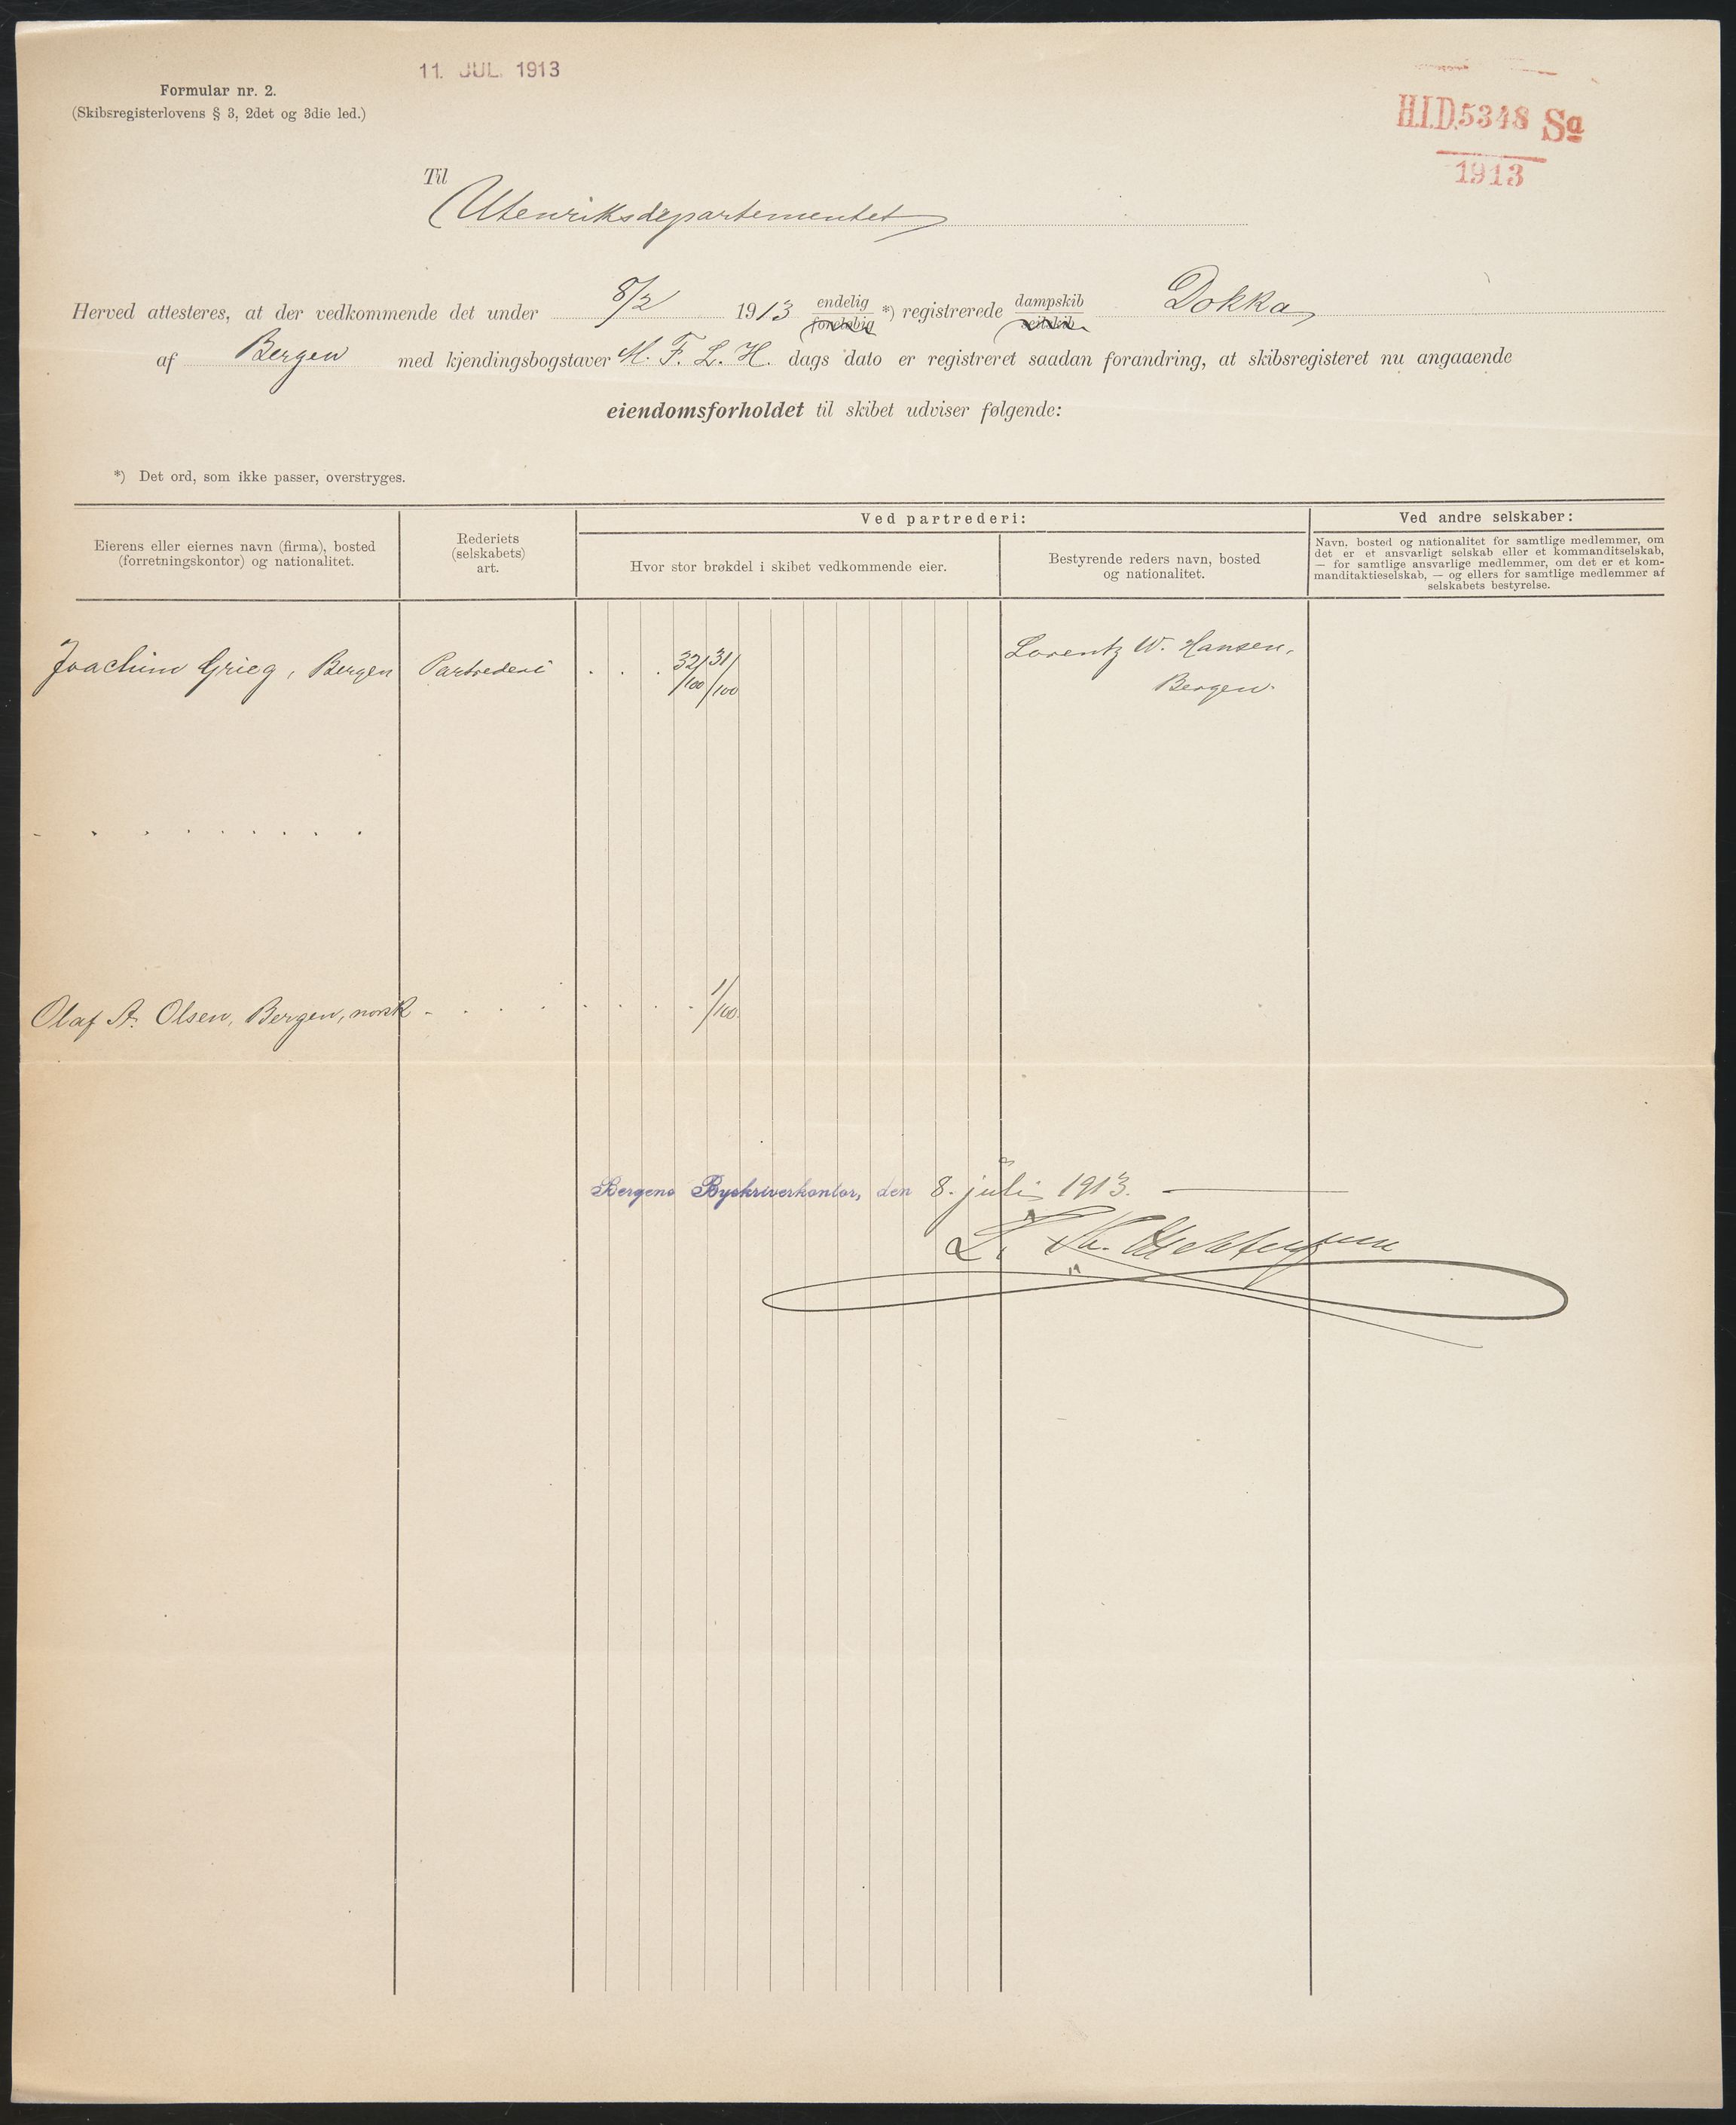 11. JUL. 1913
Formular nr. 2.
(Skibsregisterlovens § 3, 2det og 3die led.)
H.I.D. 5348 Sa
1913
Til
Utenriksdepartementet
Herved attesteres, at der vedkommende det under 8/2 1913 endelig foreløbig *) registrerede dampskib seilskib Dokka
af Bergen med kjendingsbogstaver M. F. L. H. dags dato er registreret saadan forandring, at skibsregisteret nu angaaende
eiendomsforholdet til skibet udviser følgende:
*) Det ord, som ikke passer, overstryges.
Eierens eller eiernes navn (firma), bosted
(forretningskontor) og nationalitet.
Rederiets
(selskabets)
art.
Ved partrederi:
Hvor stor brøkdel i skibet vedkommende eier.
Bestyrende reders navn, bosted
og nationalitet.
Ved andre selskaber:
Navn, bosted og nationalitet for samtlige medlemmer, om
det er et ansvarligt selskab eller et kommanditselskab,
— for samtlige ansvarlige medlemmer, om det er et kom-
manditaktieselskab, — og ellers for samtlige medlemmer af
selskabets bestyrelse.
Joachim Grieg, Bergen Partrederi . . . 32/100 31/100 Lorentz W. Hansen,
Bergen.
Olaf A. Olsen, Bergen, norsk - . . . . . . . . 1/100
Bergens Byskriverkontor, den 8. juli 1913.